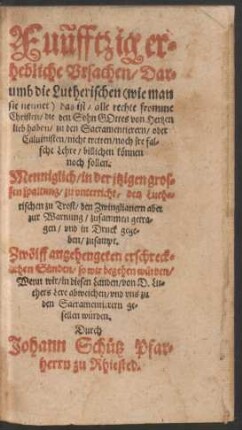 Fünfftzig er-
hebliche Vrsachen / Dar-
umb die Lutherischen (wie man
sie nennet) das ist / alle rechte fromme
Christen / die den Sohn GOttes von Hertzen
lieb haben / zu den Sacramentierern / oder
Caluinisten / nicht tretten / noch jre fal-
sche Lehre / billichen können
noch sollen.
Menniglich / in der itzigen gros-
sen spaltung / zu vnterricht / den Luthe-
rischen zu Trost / den Zwinglianern aber
zur Warnung / zusammen getra-
gen / vnd in Druck gege-
ben / zusampt.
Zwölff angehengeten erschreck-
lichen Sünden / so wir begehen würden /
Wenn wir / in diesen Landen / von D. Lu-
thers Lere abweichen / vnd vns zu
den Sacramentirern ge-
sellen würden.
Durch
Johann Schütz Pfar-
herrn zu Rhiested.